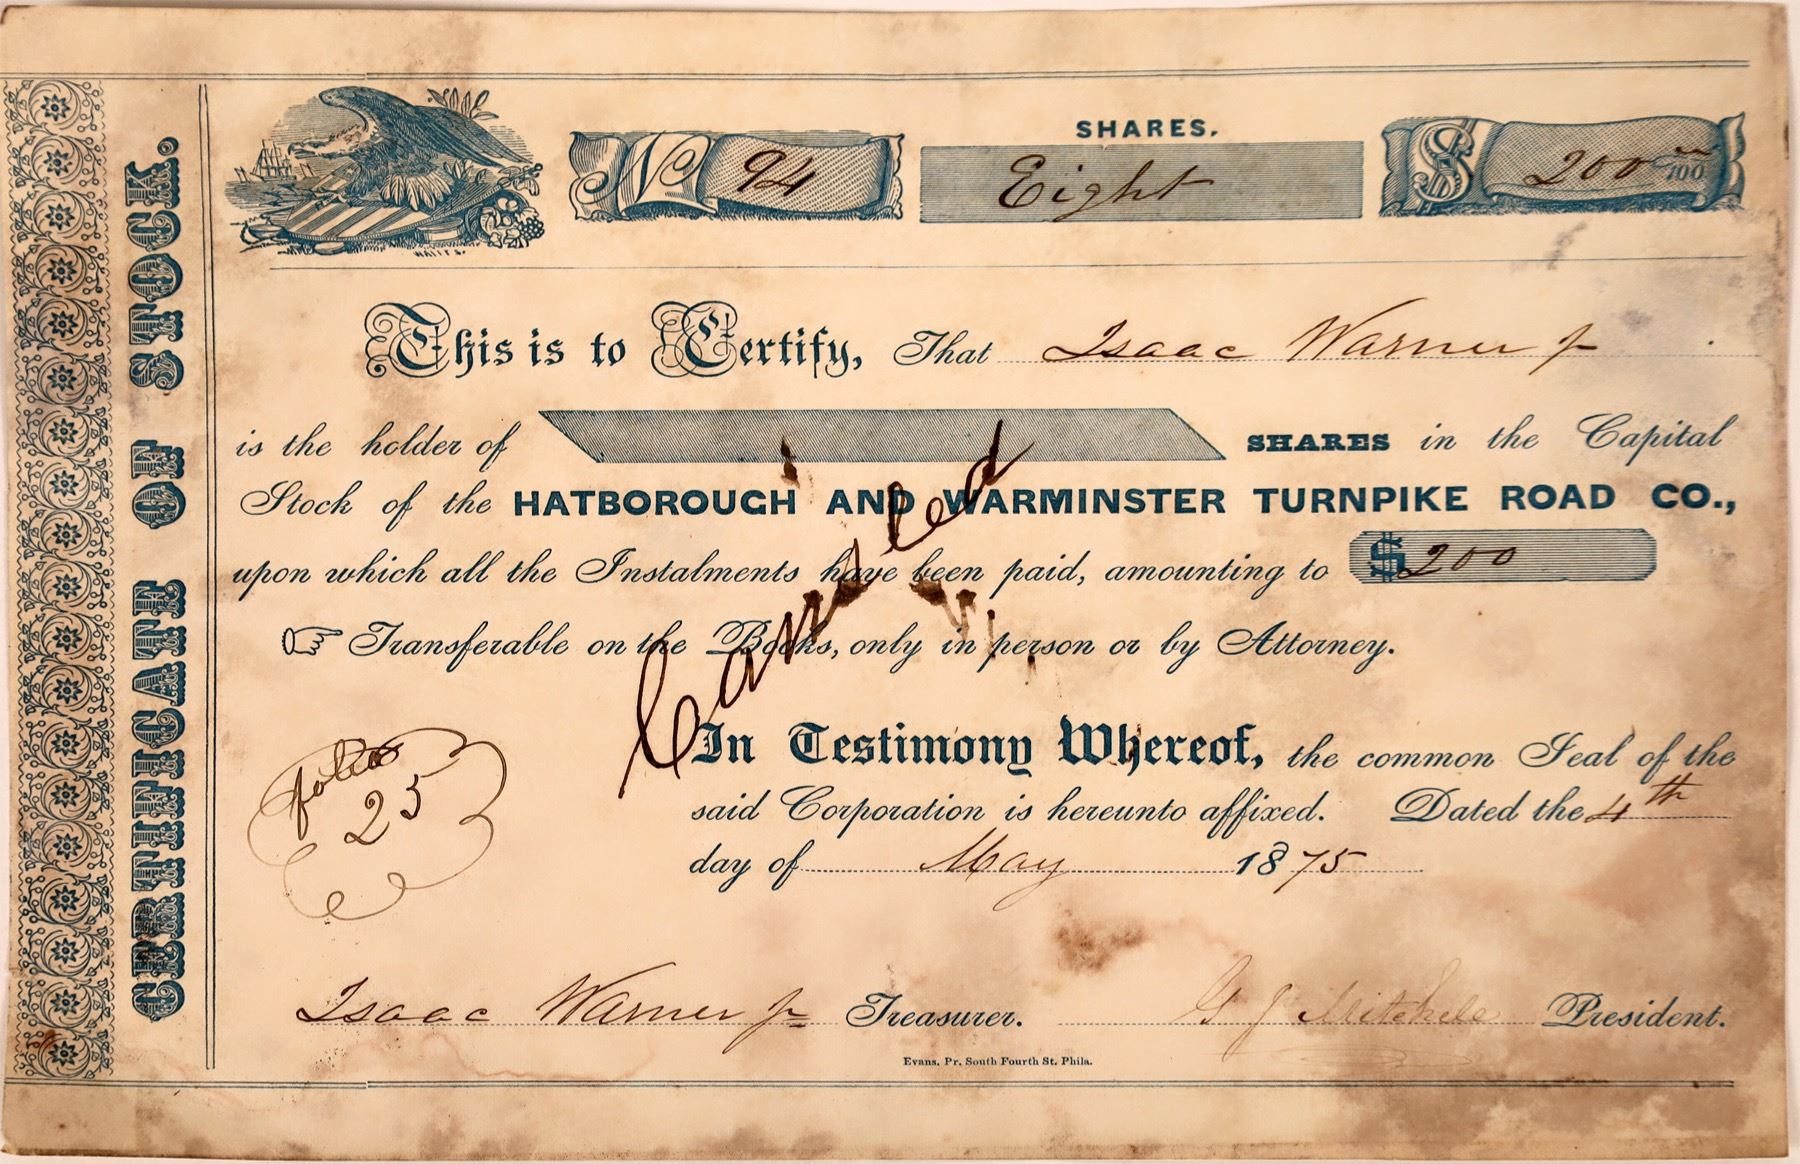 CERTIFICATE OF STOCK.
WAITT S.
No 94
SHARES.
Eight
$ 200 00/100
This is to Certify, That Isaac Warner Jr
is the holder of SHARES in the Capital
Stock of the HATBOROUGH AND WARMINSTER TURNPIKE ROAD CO.,
upon which all the Instalments have been paid, amounting to $200
Transferable on the Books, only in person or by Attorney.
Cancelled
folio
25
In Testimony Whereof, the common Seal of the
said Corporation is hereunto affixed. Dated the 4th
day of May 1875
Isaac Warner Jr Treasurer. G J Mitchele President.
Evans, Pr. South Fourth St. Phila.